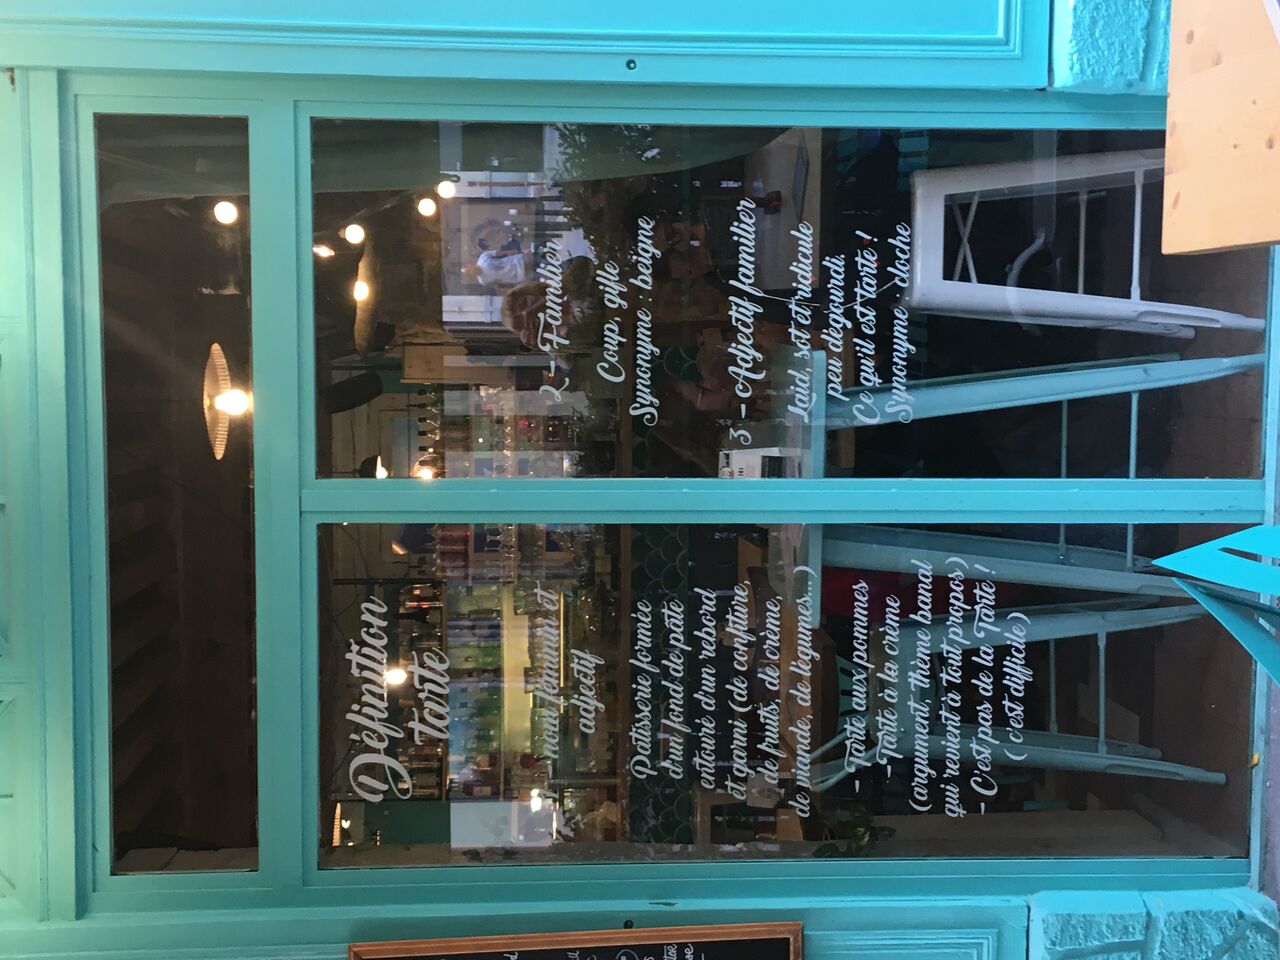 Définition
tarte
1 nom féminin et
adjectif
Patisserie formée
d'un fond de pâte
entouré d'un rebord
et garni (de confiture,
de fruits, de crème,
de viande, de légumes...)
- Tarte aux pommes
- Tarte à la crème
(argument, thème banal
qui revient à tout propos)
- C'est pas de la Tarte !
(c'est difficile)
2 - Familier
Coup, gifle
Synonyme : beigne
3 - Adjectif familier
Laid, sot et ridicule
peu dégourdi.
Ce qu'il est tarte !
Synonyme : cloche